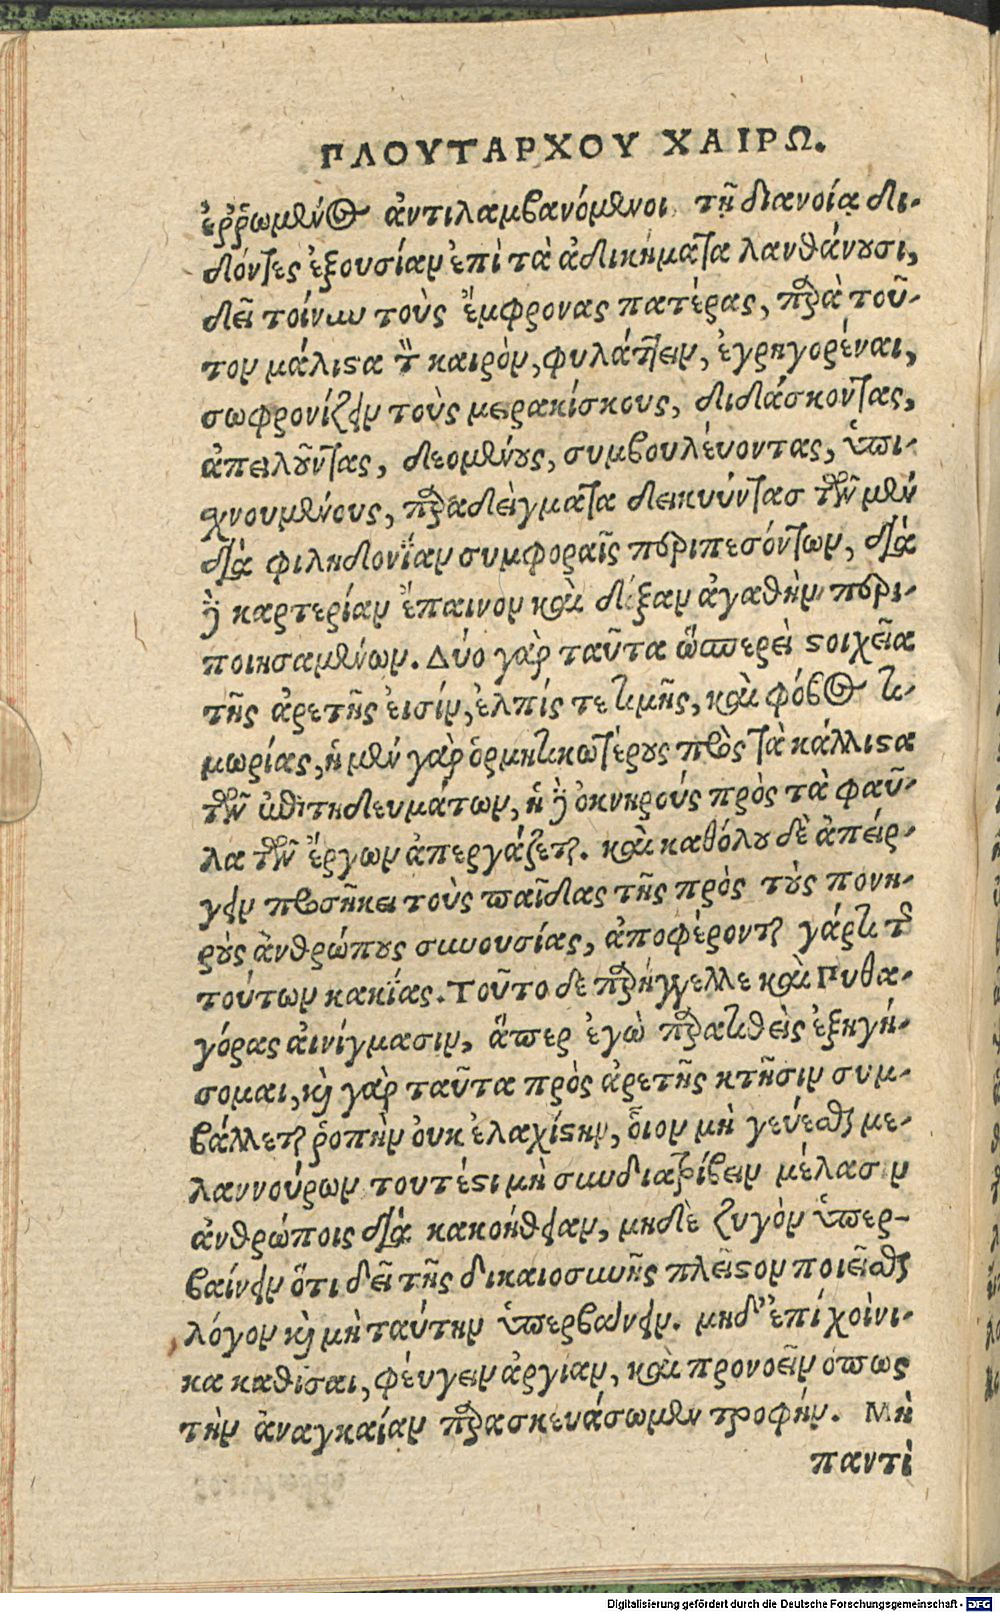 ΠΛΟΥΤΑΡΧΟΥ ΧΑΙΡΩ.
ἐῤῥωμένως ἀντιλαμβανόμενοι τῇ διανοίᾳ δι-
δόντες ἐξουσίαν ἐπὶ τὰ ἀδικήματα λανθάνουσι,
δεῖ τοίνυν τοὺς ἔμφρονας πατέρας, παρὰ τοῦ-
τον μάλιστα τὸν καιρὸν, φυλάττειν, ἐγρηγορέναι,
σωφρονίζειν τοὺς μειρακίσκους, διδάσκοντας,
ἀπειλοῦντας, δεομένους, συμβουλεύοντας, ὑπι-
χνουμένους, παραδείγματα δεικνύντασ τῶν μὲν
διὰ φιληδονΐαν συμφοραῖς περιπεσόντων, διὰ
δὲ καρτερίαν ἔπαινον καὶ δόξαν ἀγαθὴν περι-
ποιησαμένων. Δύο γὰρ ταῦτα ὥσπερεὶ στοιχεῖα
τῆς ἀρετῆς ἐισίν, ἐλπίς τε τιμῆς, καὶ φόβος τι-
μωρίας, ἡ μὲν γὰρ ὁρμητικωτέρους πρὸς τὰ κάλλιστα
τῶν ἐπιτηδευμάτων, ἡ δὲ ὀκνηρούς πρὸς τὰ φαῦ-
λα τῶν ἔργων ἀπεργάζεται. καὶ καθόλου δὲ ἀπείρ-
γειν προσῆκει τοὺς παῖδας τῆς πρὸς τοὺς πονη-
ροὺς ἀνθρώπους συνουσίας, ἀποφέρονται γάρ τι τῆς
τούτων κακΐας. Τοῦτο δε παρήγγελλε καὶ Πυθα-
γόρας ἀινίγμασιν, ἅπερ ἐγὼ παρατιθεὶς ἐξηγή-
σομαι, καὶ γὰρ ταῦτα πρὸς ἀρετῆς κτῆσιν συμ-
βάλλεται ῥοπὴν ὀυκ ἐλαχίστην, ὅιον μὴ γεύεσθαι με-
λαννούρων τουτέστι μὴ συνδιατρίβειν μέλασιν
ἀνθρώποις διὰ κακοήθειαν, μηδὲ ζυγὸν ὑπερ-
βαίνειν ὅτι δεῖ τῆς δικαιοσυνῆς πλεῖστον ποιεῖσθαι
λόγον καὶ μὴ ταύτην ὑπερβαίνειν. μηδ’ ἐπί χοίνι-
κα καθίσαι, φέυγειν ἀργίαν, καὶ προνοεῖν ὅπως
τὴν ἀναγκαίαν παρασκευάσωμεν τροφήν. Μὴ
παντὶ
Digitalisierung gefördert durch die Deutsche Forschungsgemeinschaft - DFG